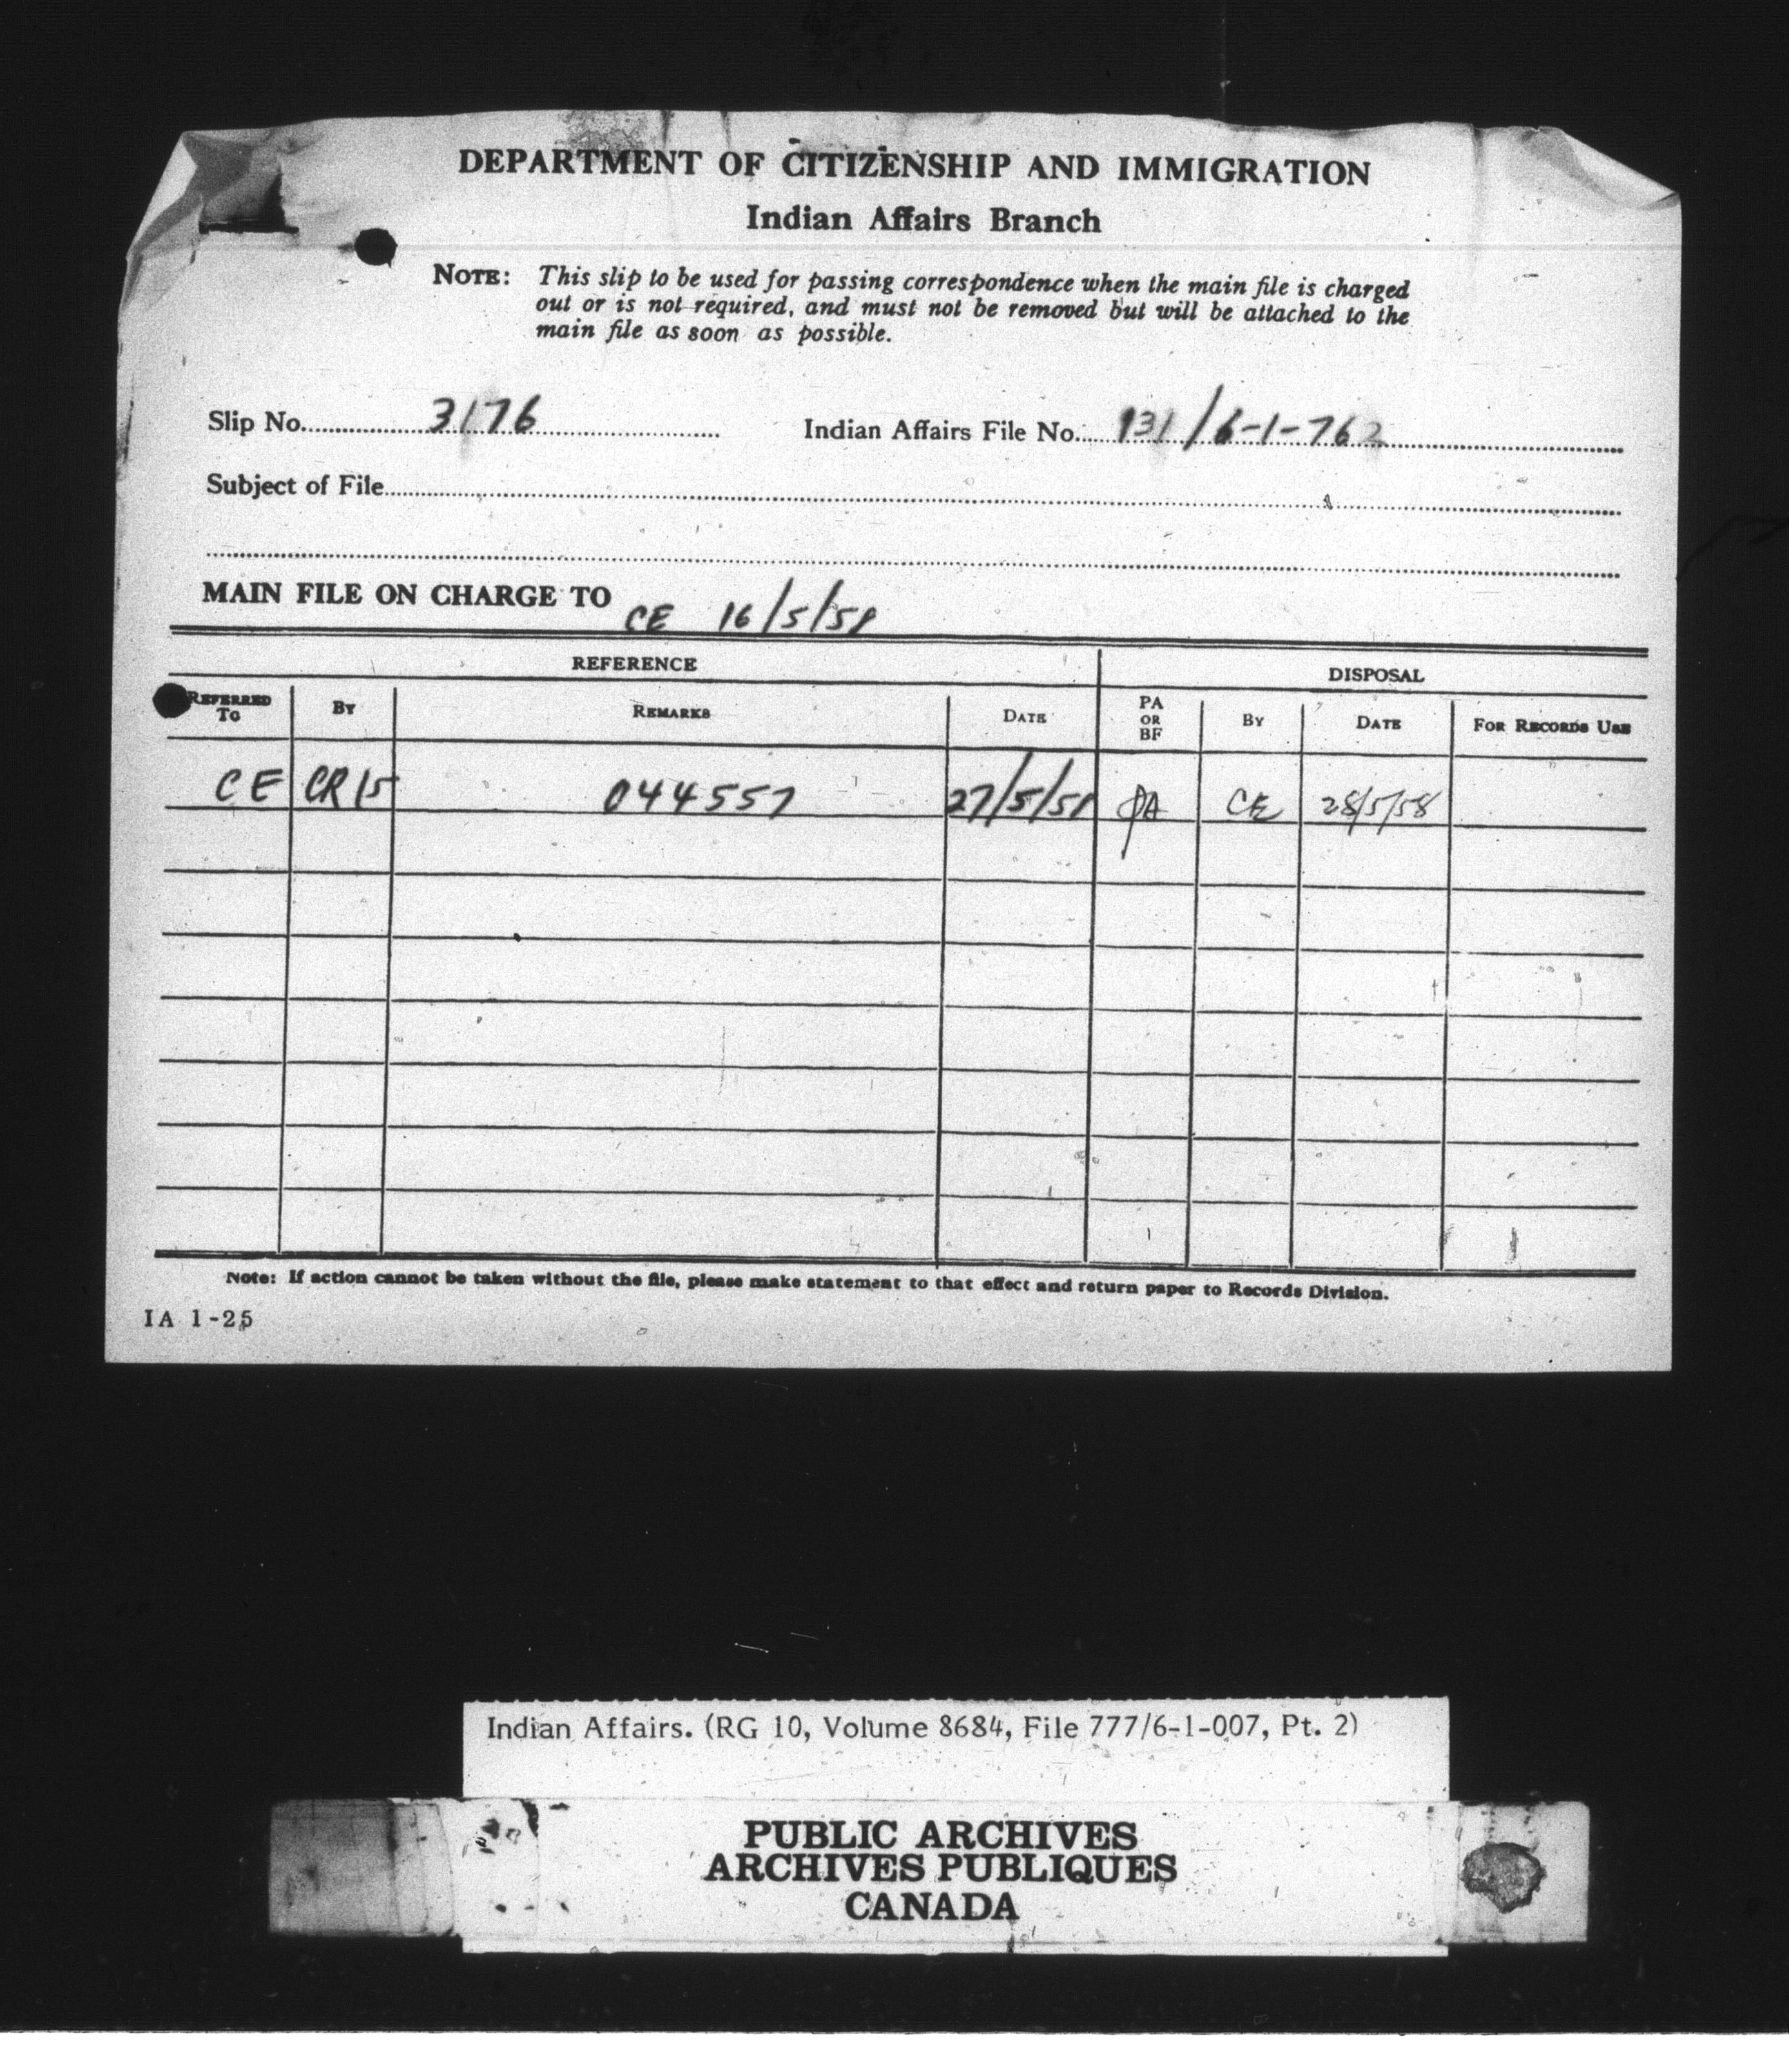 DEPARTMENT OF CITIZENSHIP AND IMMIGRATION
Indian Affairs Branch
NOTE: This slip to be used for passing correspondence when the main file is charged
out or is not required, and must not be removed but will be attached to the
main file as soon as possible.
Slip No. 3176 Indian Affairs File No. 131/6-1-762
Subject of File
MAIN FILE ON CHARGE TO CE 16/5/58
REFERENCE DISPOSAL
REFERRED TO BY REMARKS DATE PA OR BF BY DATE FOR RECORDS USE
CE CR15 044557 27/5/58 PA CE 28/5/58
Note: If action cannot be taken without the file, please make statement to that effect and return paper to Records Division.
IA 1-25
Indian Affairs. (RG 10, Volume 8684, File 777/6-1-007, Pt. 2)
PUBLIC ARCHIVES
ARCHIVES PUBLIQUES
CANADA